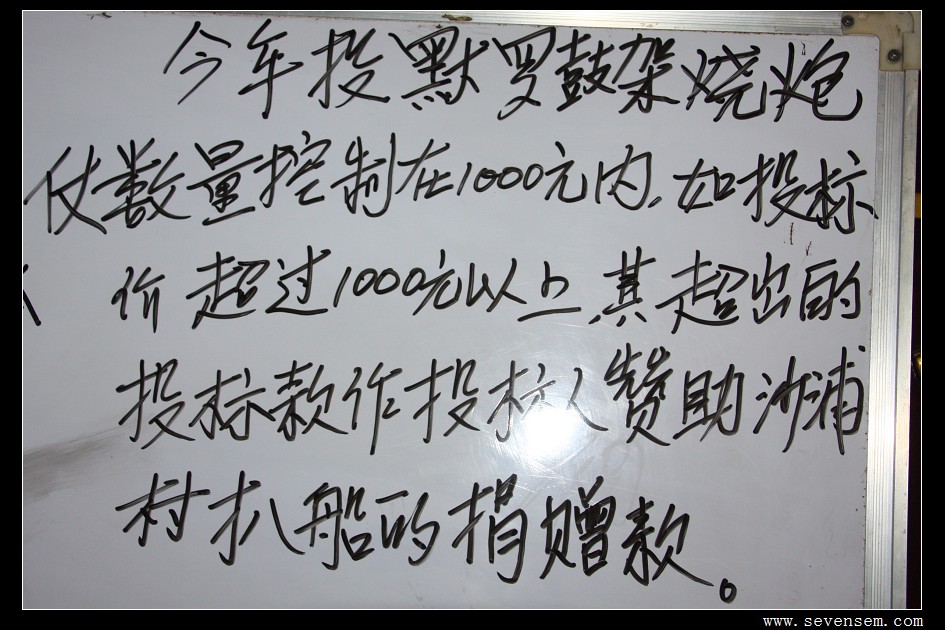 今年投默罗鼓架烧炮
仗数量控制在1000元内.如投标
价超过1000元以上.其超出的
投标款作投标人赞助沙浦
村扒船的捐赠款。
www.sevensem.com